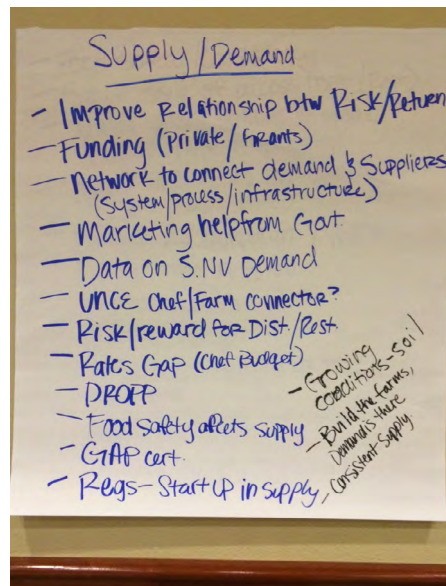 Supply/Demand
- Improve Relationship btw Risk/Return
- Funding (Private/Grants)
- Network to connect demand & Suppliers
(System/process/infrastructure)
- Marketing help from Govt.
- Data on S.NV Demand
- UNCE Chef/Farm connector?
- Risk/reward for Dist./Rest.
- Rates Gap (Chef Budget)
- DROPP
- Food Safety affects supply
- GAP cert.
- Regs-Start up in supply
- Growing
conditions-soil
- Build the farms,
Demand is there
, consistent supply